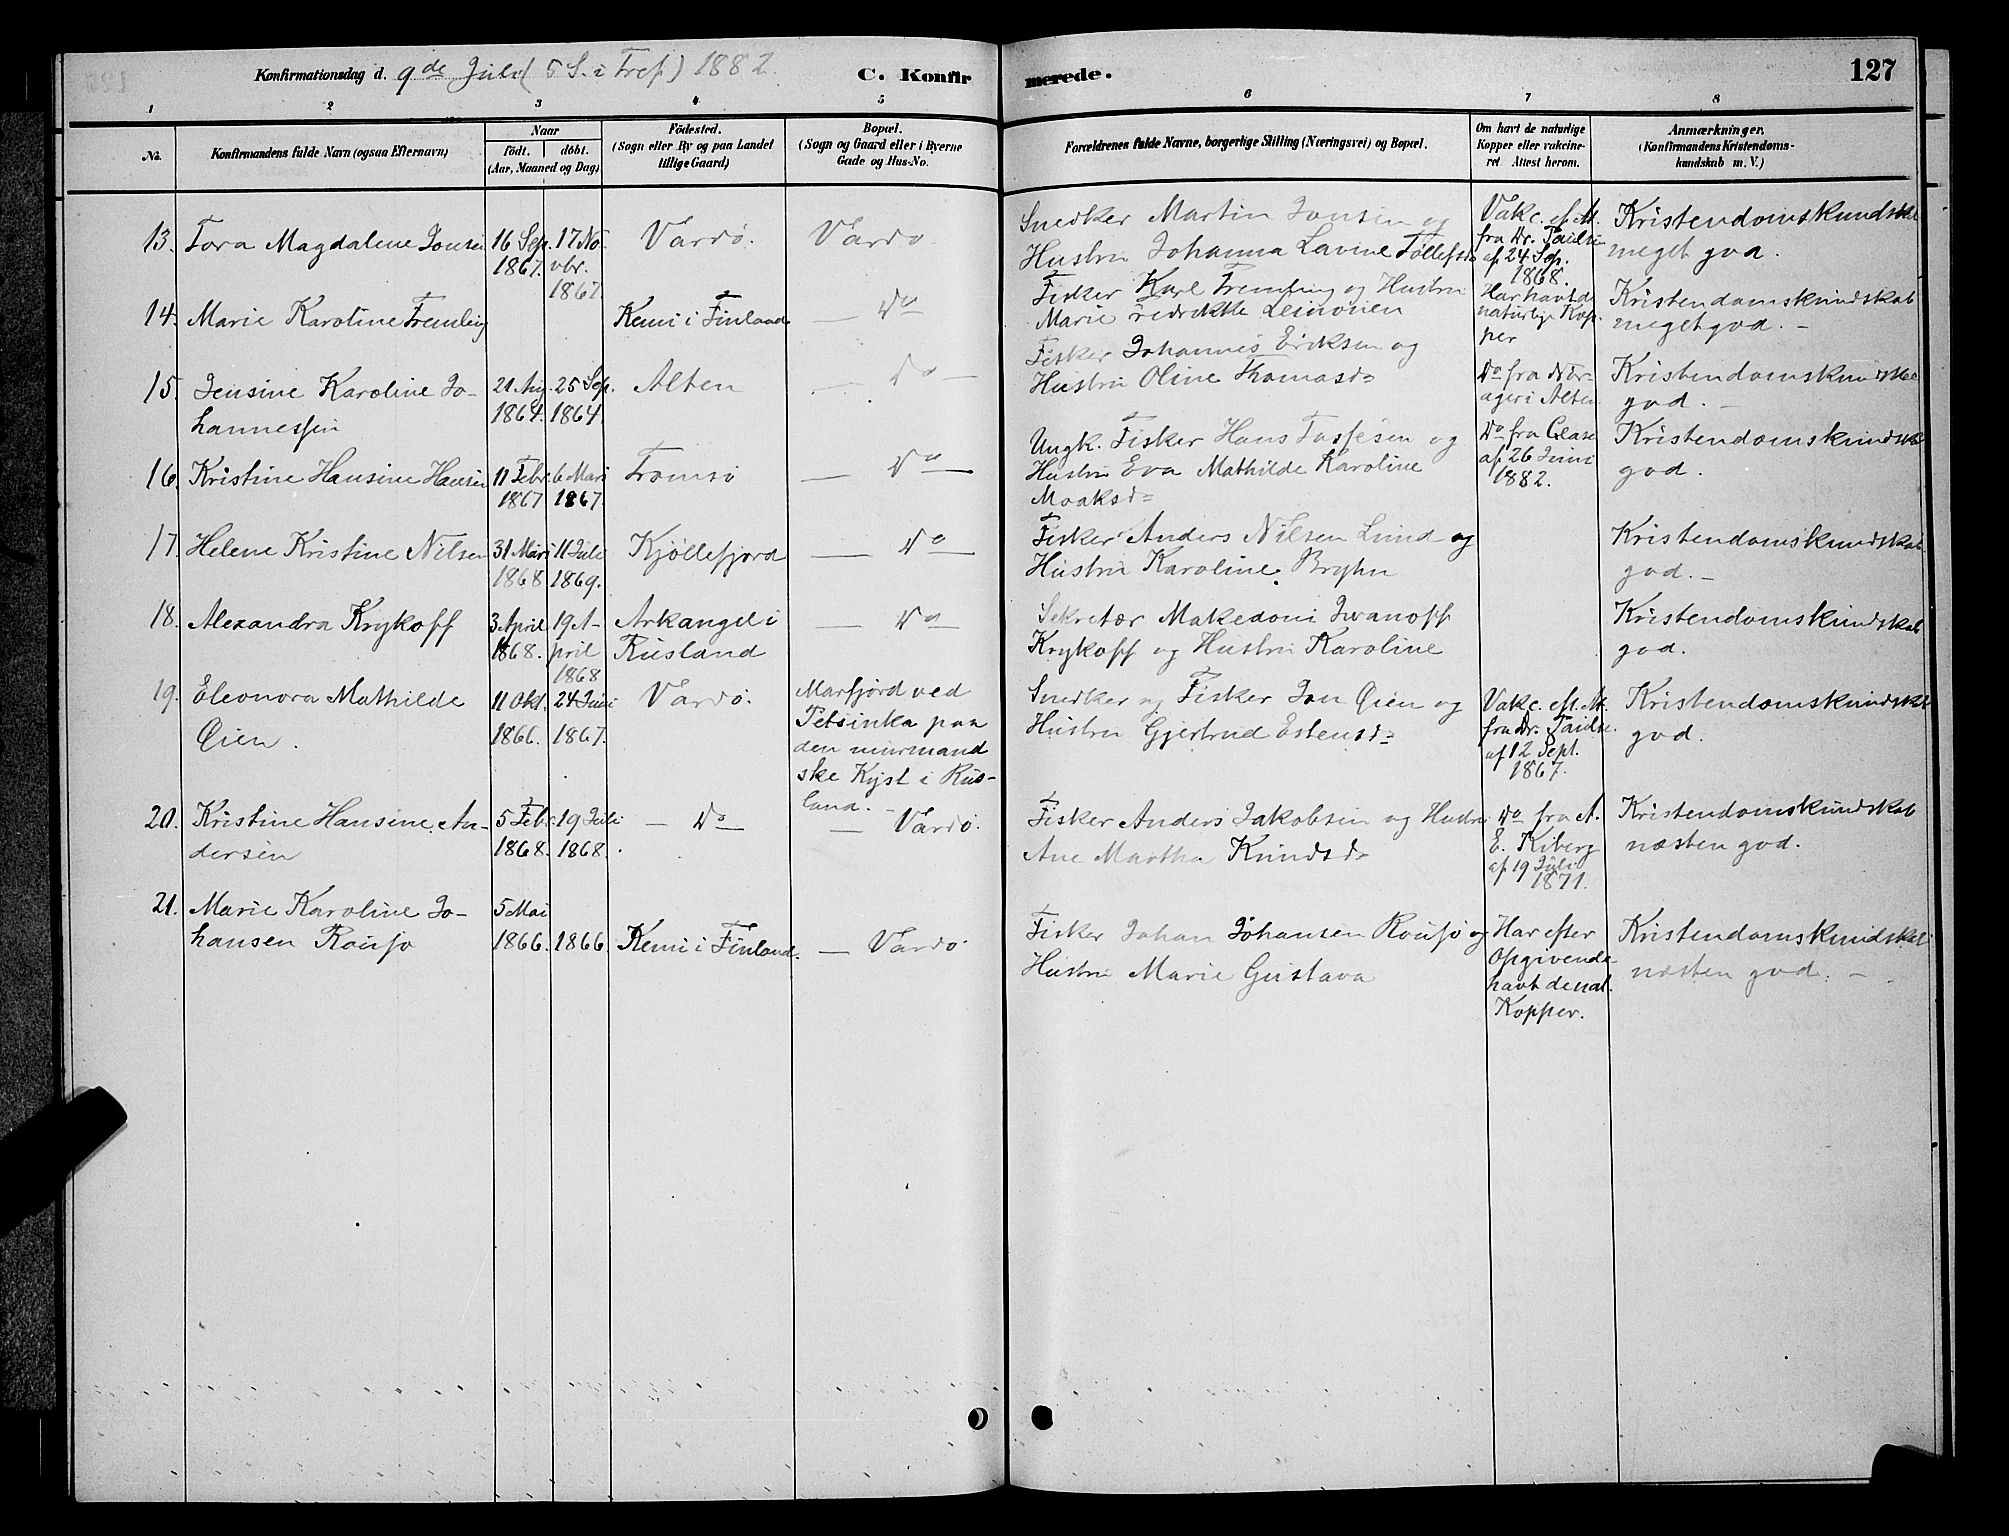 Konfirmationsdag d. 9de Juli (5 S. i Tref.) 1882
C. Konfirmerede.
127
1 2 3 4 5 6 7 8
No.
Konfirmandens fulde Navn (ogsaa Efternavn)
Naar
født. døbt.
(Aar, Maaned og Dag)
Födested.
(Sogn eller By og paa Landet
tillige Gaard)
Bopæl.
(Sogn og Gaard eller i Byerne
Gade og Hus-No.
Forældrenes fulde Navne, borgerlige Stilling (Næringsvei) og Bopæl.
Om havt de naturlige
Kopper eller vakcine-
ret Attest herom.
Anmærkninger.
(Konfirmandens Kristendoms-
kundskab m. V.)
13. Tora Magdalene Jonsen
16 Sep.
1867.
17 No
vbr.
1867.
Vardö.
Vardö.
Snedker Martin Jonsen og
Hustru Johanna Lavine Tøllefsd
Vakc. ef. A.
fra Dr.
af 24 Sep.
1868.
Kristendomskundskab
meget god.
14. Marie Karoline Fremling
Kemi i Finland
— Do
Fisker Karl Fremling og Hustru
Marie Leinonen
Har havt d.
naturlige Kop-
per
Kristendomskundskab
meget god. —
15. Jensine Karoline Jo-
hannessen
21 Aug.
1864.
25 Sep.
1864.
Alten
— Do —
Fisker Johannes Eriksen og
Hustru Oline Thomasd=
Do fra
i Alten
Kristendomskundskab
god. —
16. Kristine Hansine Hansen
11 Febr.
1867
6 Mars
1867.
Tromsö
— Do —
Ungk. Fisker Hans og
Hustru Eva Mathilde Karoline
Moaksd=
Do fra
af 26 Juni
1882.
Kristendomskundskab
god.
17. Helene Kristine Nilsen
31 Mars
1868
11 Juli
1869.
Kjöllefjord
— Do
Fisker Anders Nilsen Lund og
Hustru Karoline Bryhn
Kristendomskundskab
god. —
18. Alexandra Krykoff
3 April
1868.
19 A-
pril
1868
Arkangel i
Rusland
— Do
Sekretær Makedoni Iwanoff
Krykoff og Hustru Karoline
Kristendomskundskab
god.
19. Eleonora Mathilde
Øien.
11 Okt.
1866.
24 Juni
1867.
Vardö.
Marfjord ved
Petsinka paa
den murmand
ske Kyst i Rus-
land. —
Snedker og Fisker Jon Øien og
Hustru Gjertrud Estensd=
Vakc. eft. A.
fra Dr.
af 12 Sept.
1867.
Kristendomskundskab
god.
20. Kristine Hansine An-
dersen
5 Feb.
1868.
19 Juli
1868.
— Do —
— Vardö.
Fisker Anders Jakobsen og Hustru
Ane Martha Knudsd=
Do fra A.
E. Kiberg
af 19 Juli
1871.
Kristendomskundskab
næsten god.
21. Marie Karoline Jo-
hansen Rousjo
5 Mai
1866.
1866
Kemi i Finland.
— Vardö
Fisker Johan Johansen Rousjo og
Hustru Marie Gustava
Har efter
Opgivende
havt de nat.
Kopper.
Kristendomskundskab
næsten god. —